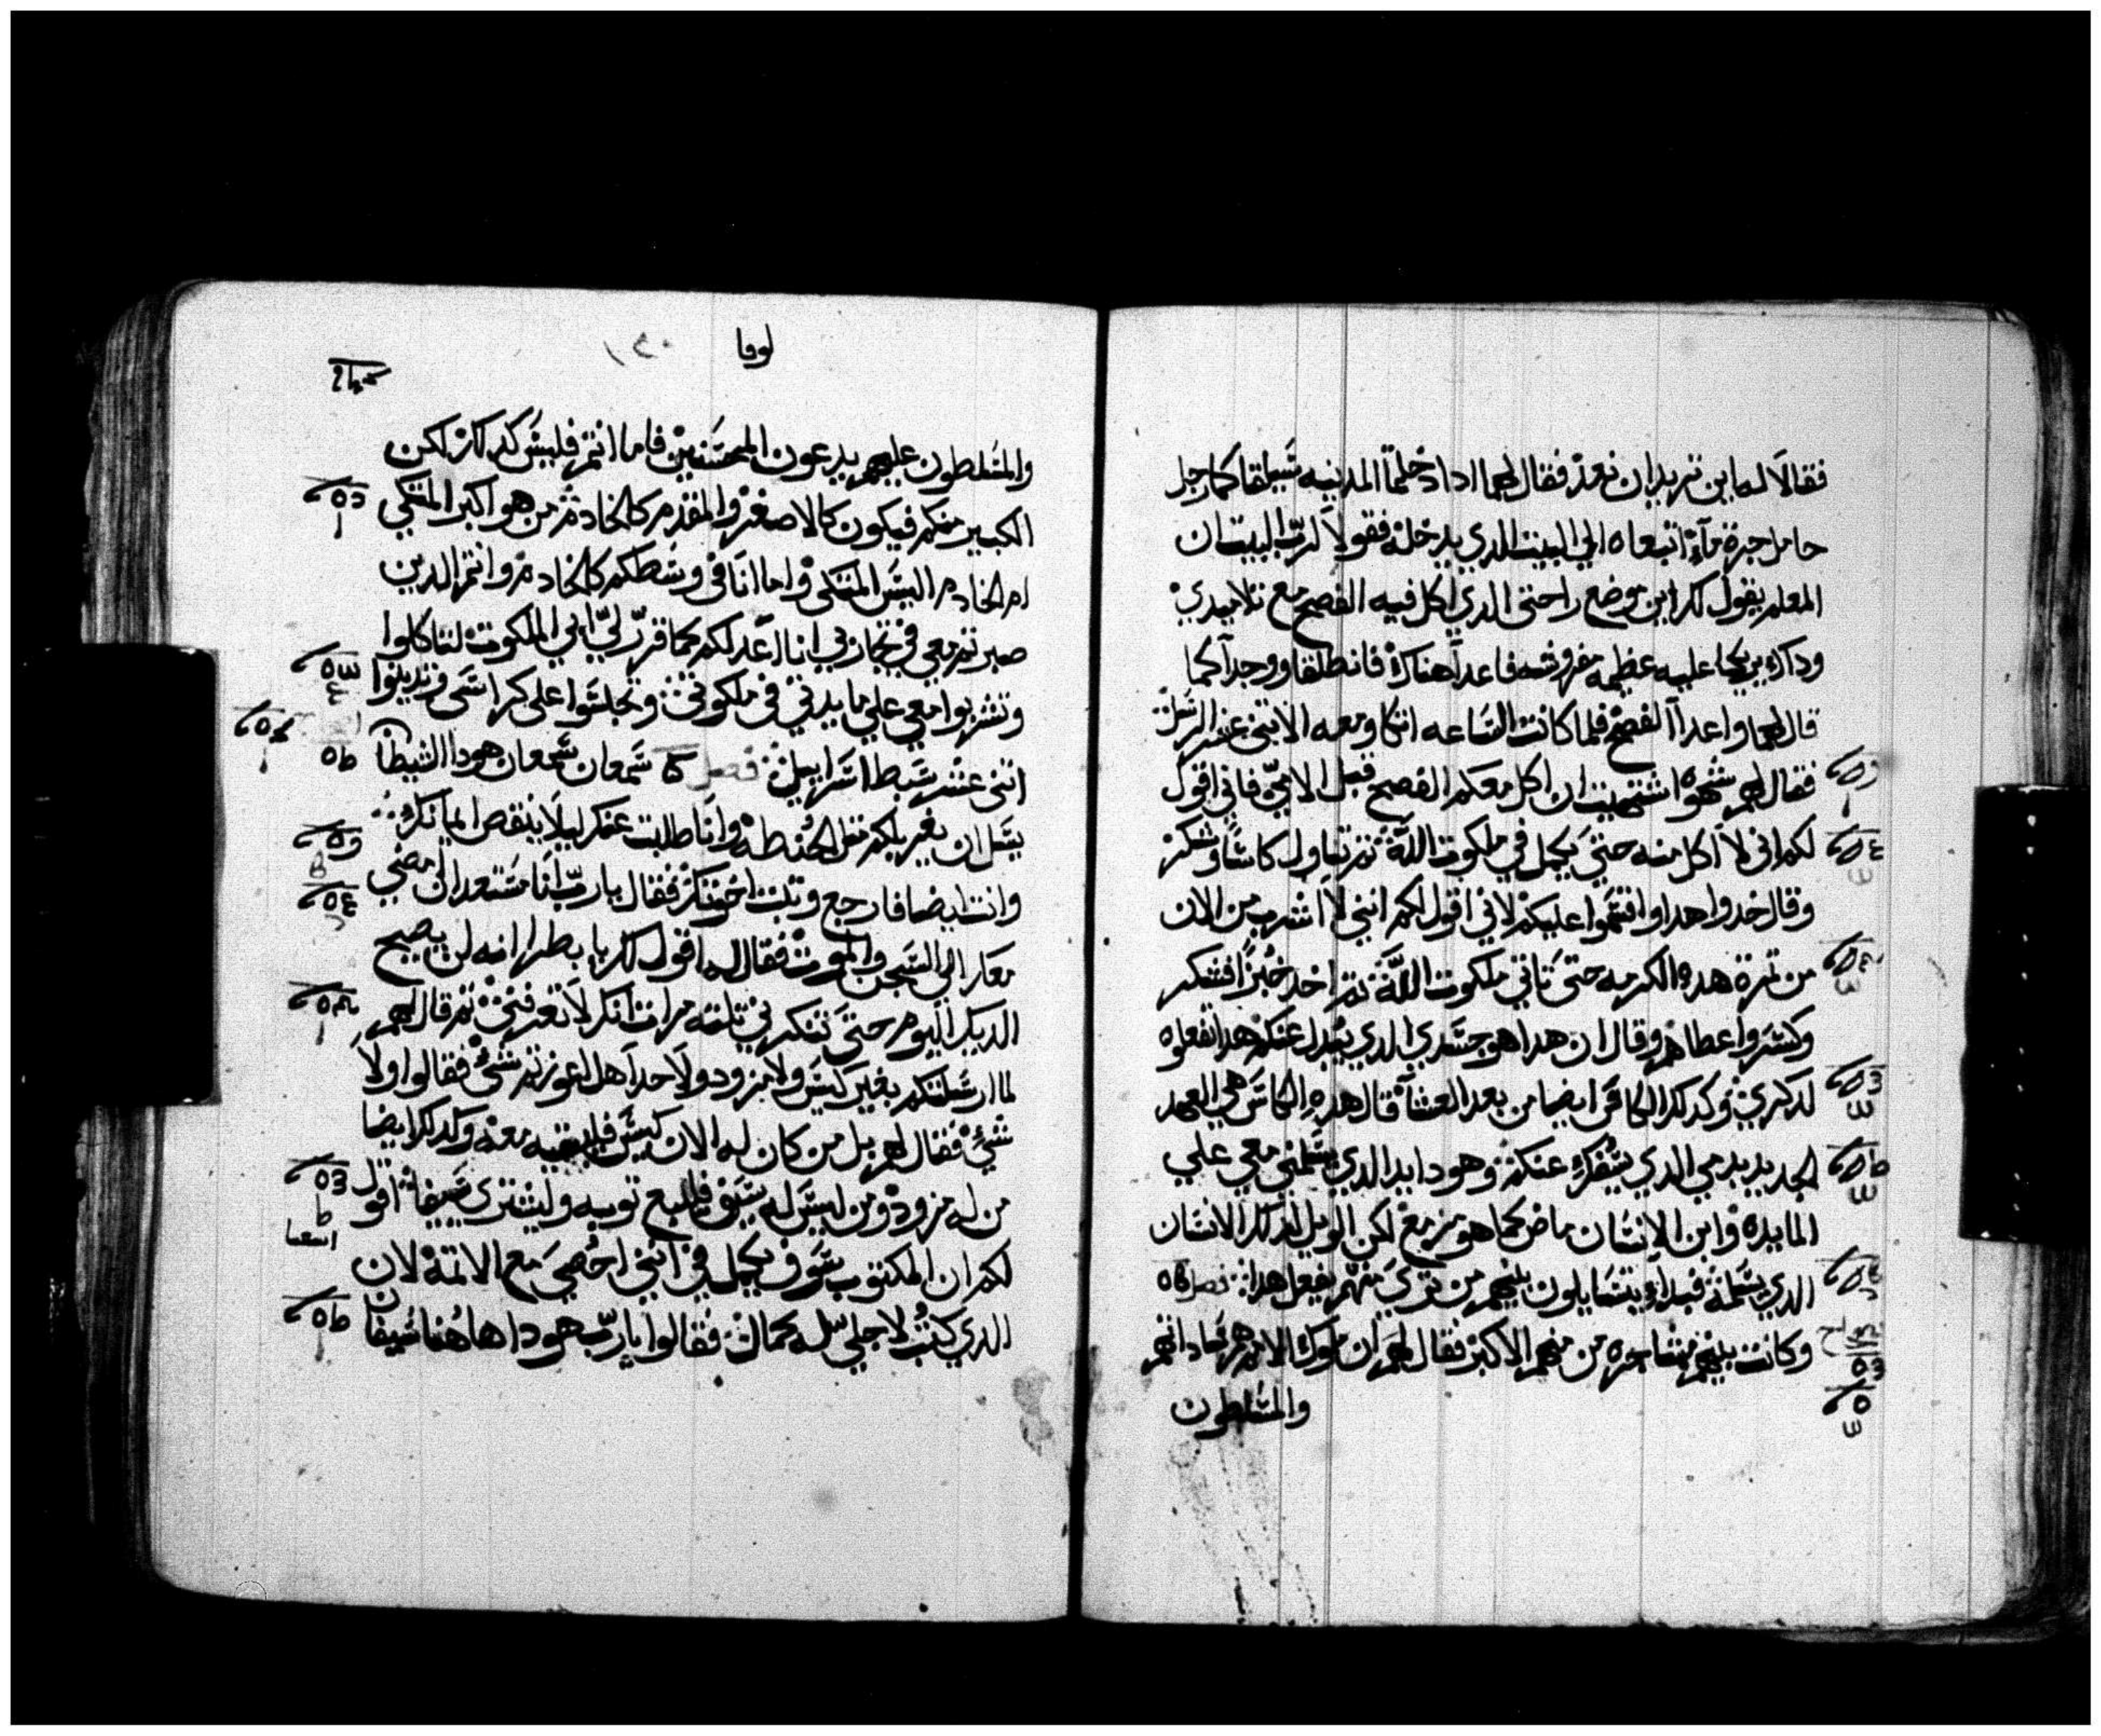 فقالا له اين تريد ان نعد فقال لهما ادا دخلتما المدينه سيلقاكما رجل
حامل جرة مآء اتبعاه الي البيت الدي يدخله فقولا لرب البيت ان
المعلم يقول لك اين موضع راحتي الدي اكل فيه الفصح مع تلاميدي
وداك يريكما عليه عظيمه مفروشه فاعدا هناك فانطلقا ووجدا كما
قال لهما واعدآ الفصح فلما كانت الساعه اتكا ومعه الاتني عشر الرسل
فقال لهم شهوه اشتهيت ان اكل معكم الفصح قبل الامي فاني اقول
لكم اني لا اكل منه حتي يكمل في ملكوت الله تم تناول كاسا وشكر
وقال خدوا هدا واقتسموا عليكم لاني اقول لكم انني لا اشرب من الان
من تمرة هده الكرمه حتي تاتي ملكوت الله تم اخد خبزا فشكر
وكسر واعطاهم وقال ان هدا هو جسدي الدي يبدل عنكم هدا تفعلوه
لدكري وكدلك الكاس ايضا من بعد العشآ قال هده الكاس هي العهد
الجديد بدمي الدي يسفك عنكم وهودا يد الدي يسلمني معي علي
المايده وابن الانسان ماض كما هو مزمع لكن الويل لدلك الانسان
الدي يسلمه فبداء يتسايلون بينهم من تري منهم يفعل هدا فصل
وكانت بينهم مشاجره من منهم الاكبر فقال لهم ان ملوك الامم هم ساداتهم
والمسلطون
لوقا
١٤٠
والمسلطون عليهم يدعون المحسنين فاما انتم فليس كدلك لكن
الكبير منكم فيكون كالاصغر والمقدم كالخادم من هو اكبر المتكي
ام الخادم اليس المتكي واما انا في وسطكم كالخادم وانتم الدين
صبرتم معي في تجاربي انا اعد لكم كما قرر لي ابي الملكوت لتاكلوا
وتشربوا معي علي مايدتي في ملكوتي وتجلسوا علي كراسي وتدينوا
اتني عشر سبط اسراييل فصل شمعان شمعان هودا الشيطان
يسل ان يغربلكم متل الحنطه وانا طلبت عنك ليلا ينقص ايمانك
وانت ايضا فارجع وتبت اخوتك فقال يا رب انا مستعد ان امضي
معك الي السجن والموت فقال له اقول لك يا بطرس انه لن يصيح
الديك اليوم حتي تنكرني تلته مرات انك لا تعرفني تم قال لهم
لما ارسلتكم بغير كيس ولا مزود ولا حدآ هل اعوزتم شي فقالوا ولا
شي فقال لهم بل من كان له الان كيس معه وكدلك ايضا
من له مزود ومن ليس له سيف فليبع توبه وليشتري سيفا اقول
لكم ان المكتوب سوف يكمل في انني احصي مع الاتمة لان
الدي كتب لاجلي له كمال فقالوا يا رب هودا هاهنا سيفان